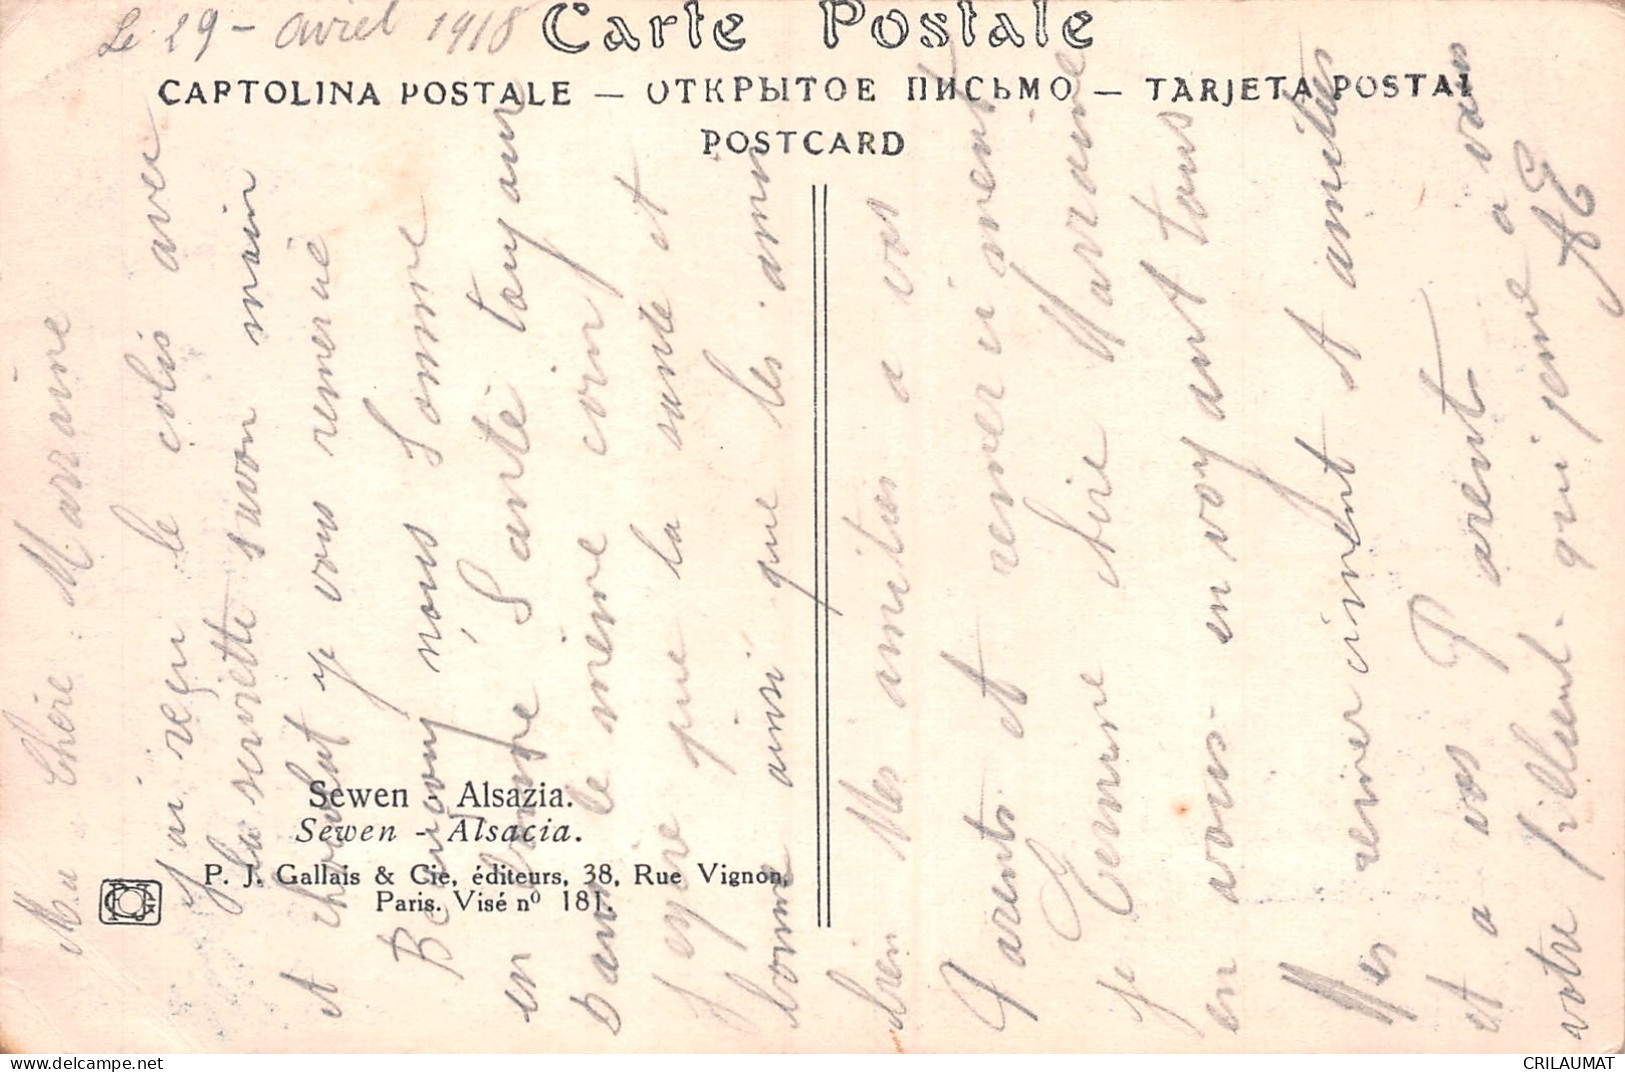 Le 29 - avril 1918
Carte Postale
CARTOLINA POSTALE — ОТКРЫТОЕ ПИСЬМО — TARJETA POSTAL
POSTCARD
Ma Chère Marraine
J'ai reçu le colis avec
la serviette savon main
et chocolat je vous remercie
nous Somme
en bonne Santé toujours
dans le même coin
J'espère que la santé et
bonne ainsi que les amis
bien Mes amitiés a vos
Parents et remerciment
je Termine chère Marraine
en vous envoyant tous
Mes remerciment et amitiés
et a vos Parent a vous
votre filleul qui pense à
Sewen - Alsazia.
Sewen - Alsacia.
P. J. Gallais & Cie, éditeurs, 38, Rue Vignon,
Paris. Visé nº 181.
CRILAUMAT